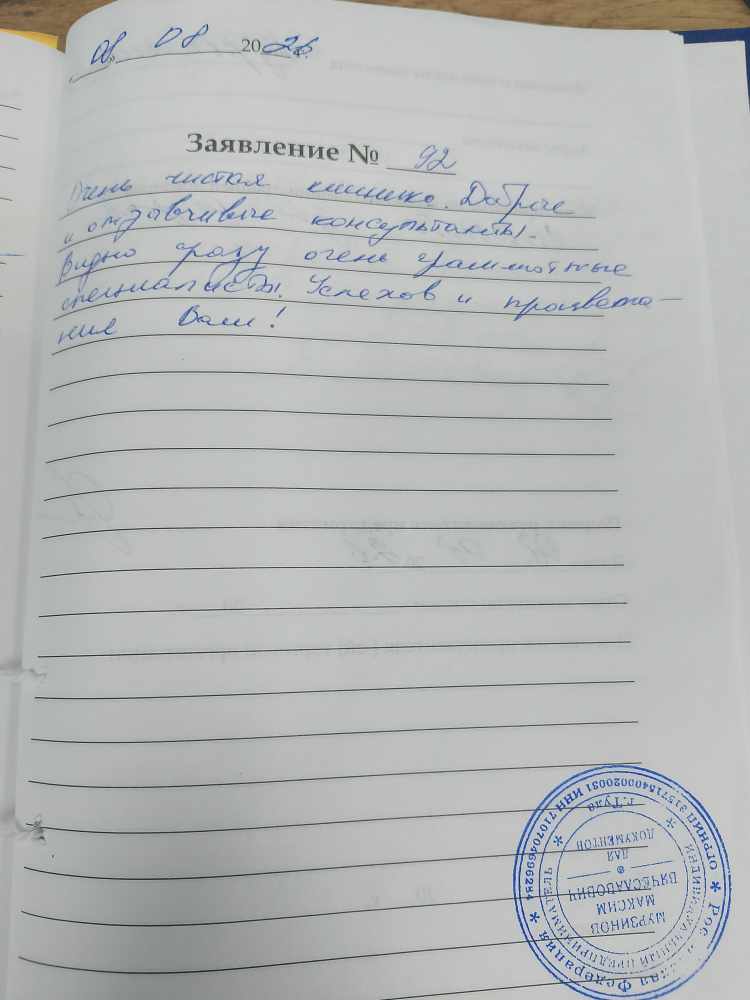 08 08 2026
Заявление № 92
Очень чистая клиника. Добрые
и отзывчивые консультанты.
Видно сразу очень грамотные
специалисты. Успехов и процвета-
ния Вам!
Российская Федерация * ОГРНИП 315715400020031 ИНН 710704696284 *
ИНДИВИДУАЛЬНЫЙ ПРЕДПРИНИМАТЕЛЬ * г. Тула *
МУРЗИНОВ
МАКСИМ
ВЯЧЕСЛАВОВИЧ
ДЛЯ
ДОКУМЕНТОВ